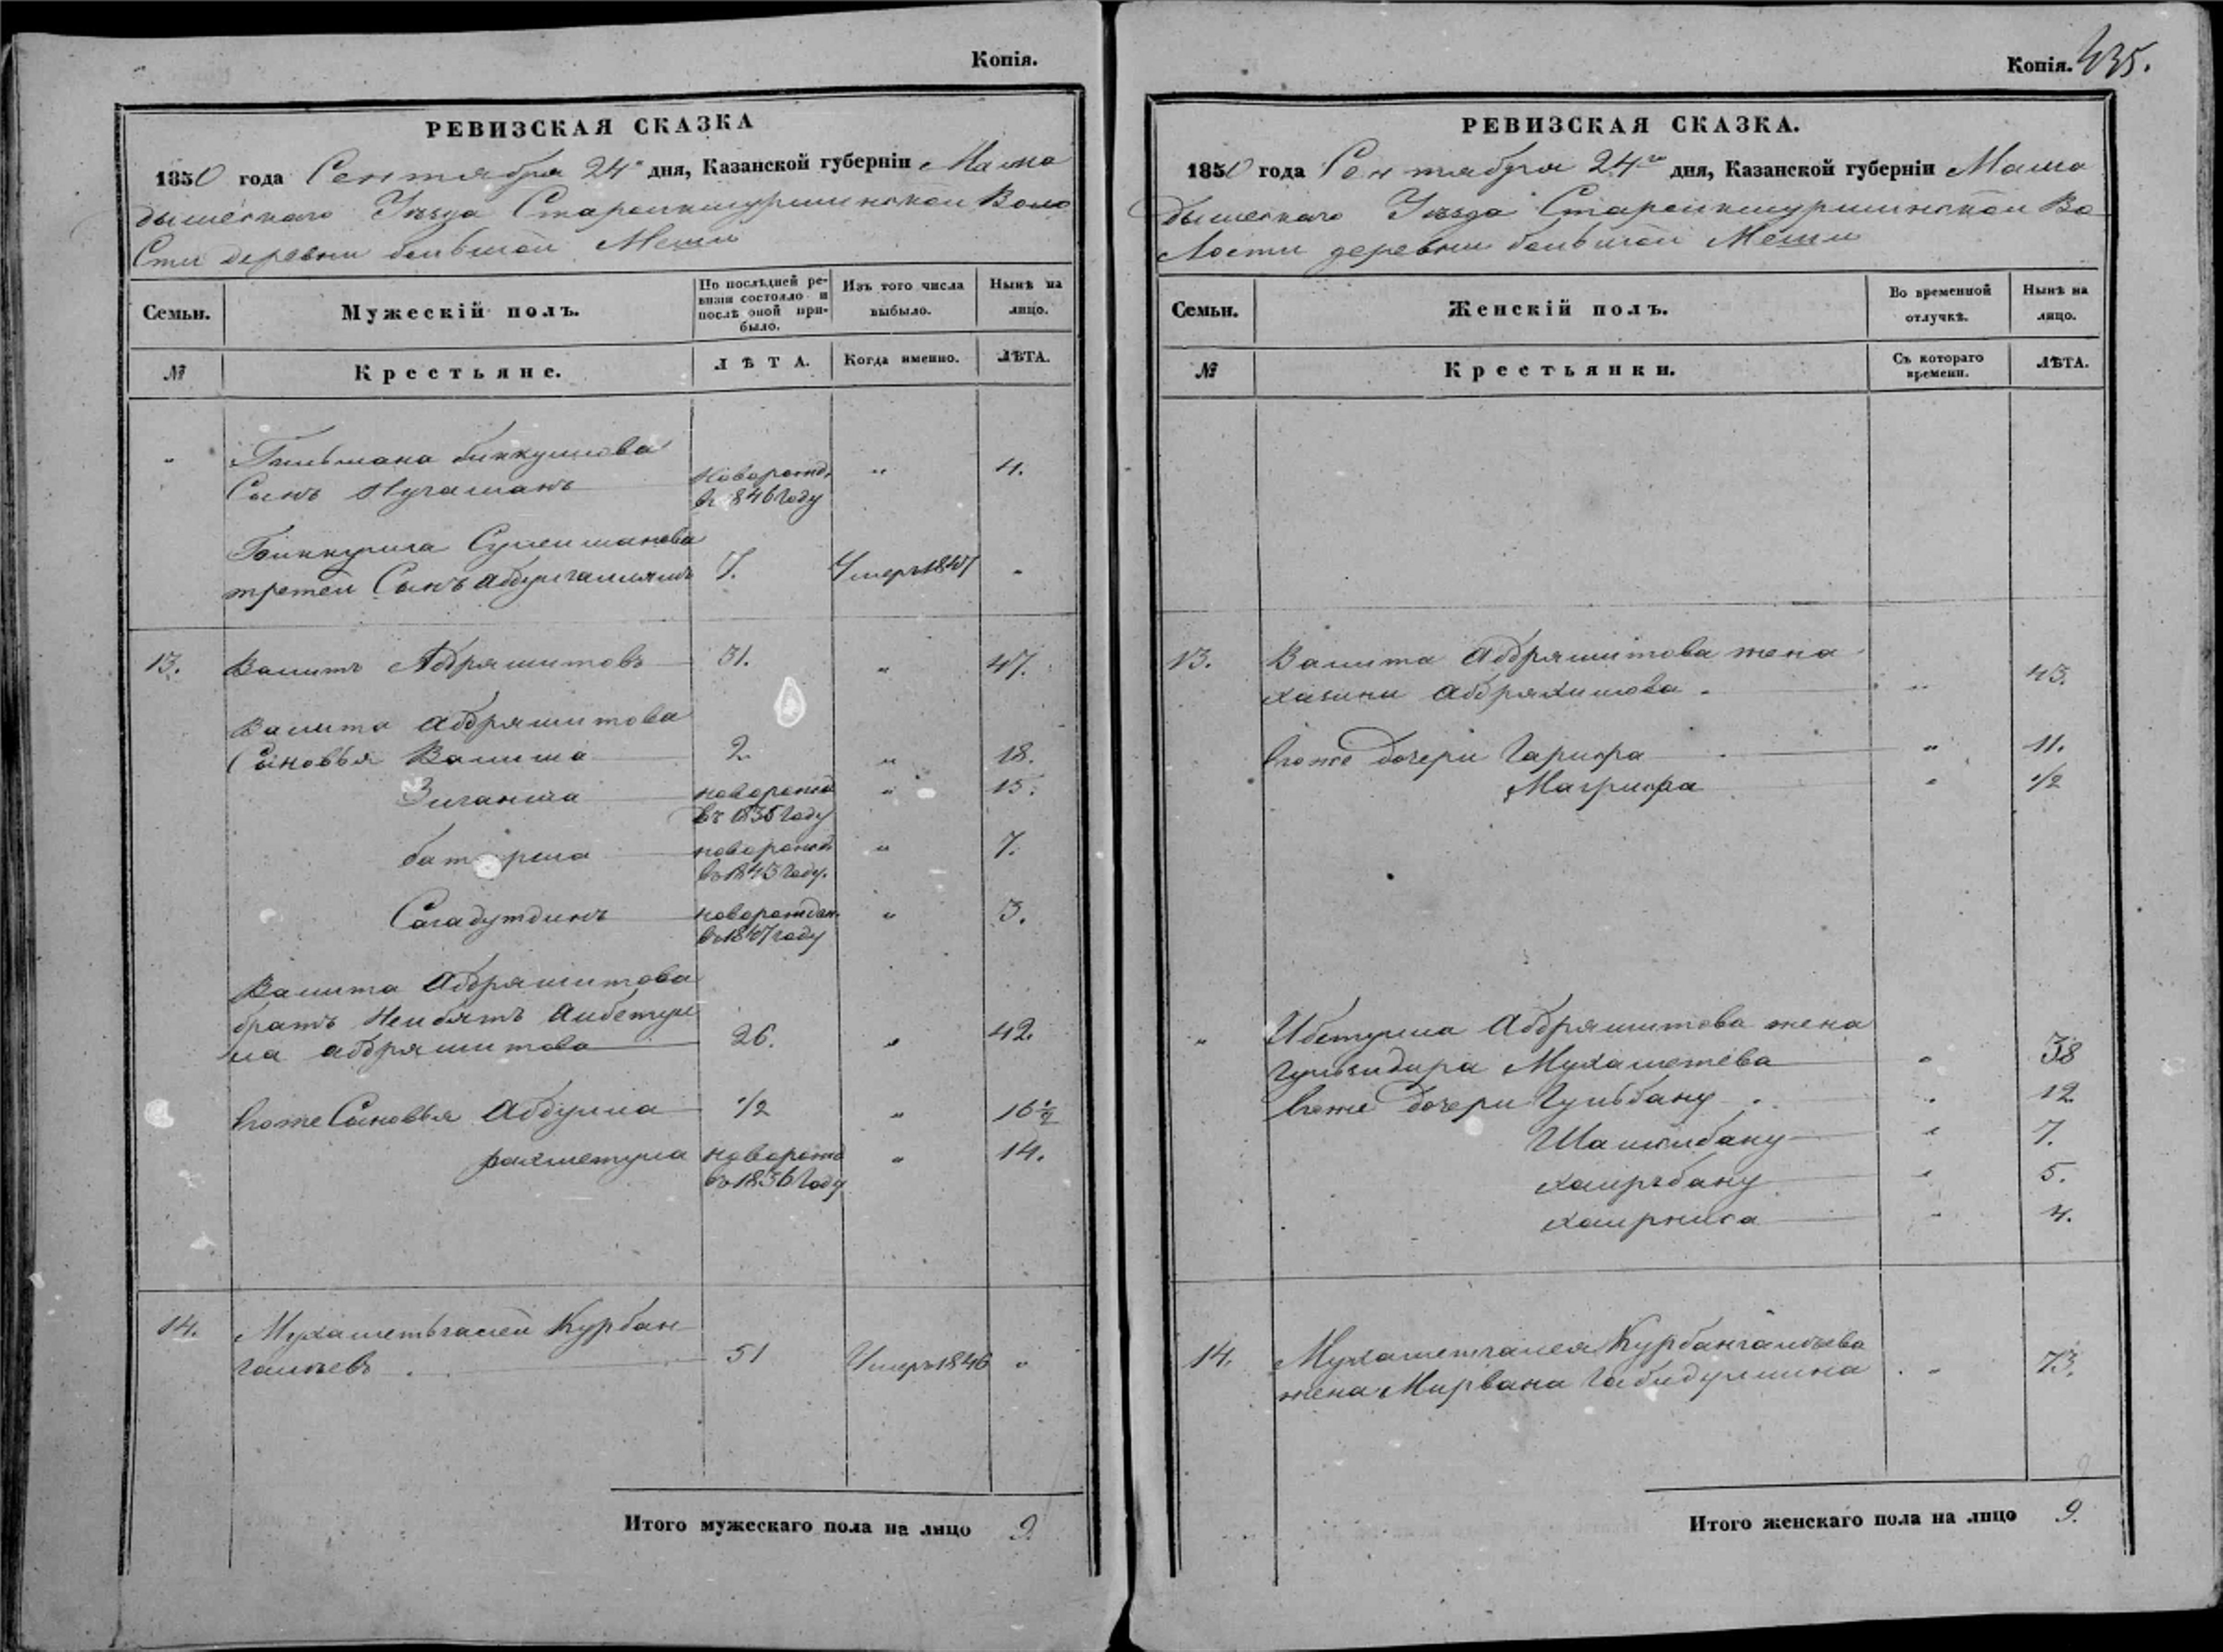 Копія.
РЕВИЗСКАЯ СКАЗКА
1850 года Сентября 24 дня, Казанской губерніи Мама
дышескаго Уезда Староикшурминской Воло
Сти деревни большой Меши
Семьи.
Мужескій полъ.
По послѣдней ре-
визіи состояло и
послѣ оной при-
было.
Изъ того числа
выбыло.
Нынѣ на
лицо.
№
Крестьяне.
ЛѢТА.
Когда именно.
ЛѢТА.
" Гильмана биккулова
Сынъ Нугаманъ Новорожд. " 4.
въ 1846 Году
Биккула Сулеиманова
третей Сынъ Абдулгаллямъ 7. Умеръ 1847 "
13. Валитъ Абдряшитовъ 31. " 47.
Валита Абдряшитова
Сыновья Валиша 2. " 18.
Зиганша новорожд " 15.
въ 1835 Году
батырша новорожд " 7.
въ 1843 Году.
Сагадутдинъ новорожден. " 3.
въ 1847 году
Валита Абдряшитова
братъ Неибятъ Аибетул
ла абдряшитова 26. " 42.
Егоже Сыновья Абдулла 1/2 " 16 1/2
рахметулла новорожд " 14.
въ 1836 Году
14. Мухаметьгалей Курбан
галѣевъ 51 Умеръ 1846 "
Итого мужескаго пола на лицо 9.
Копія. 435.
РЕВИЗСКАЯ СКАЗКА.
1850 года Сентября 24го дня, Казанской губерніи Мама
дышескаго Уезда Староикшурминской Во
лости деревни большой Меши
Семьи.
Женскій полъ.
Во временной
отлучкѣ.
Нынѣ на
лицо.
№
Крестьянки.
Съ котораго
времени.
ЛѢТА.
13. Валита Абдряшитова жена
хазина Абдряхимова " 43.
Егоже Дочери Гарифа " 11.
Магрифа " 1/2
" Ибетулла Абдряшитова жена
Гульзидира Мухаметева " 38
Егоже Дочери Гульбану " 12
Шамсибану " 7.
хаирьбану " 5.
хаирниса " 4.
14. Мухаметгалея Курбангалѣева
жена Мирвана Габидуллина " 73.
Итого женскаго пола на лицо 9.